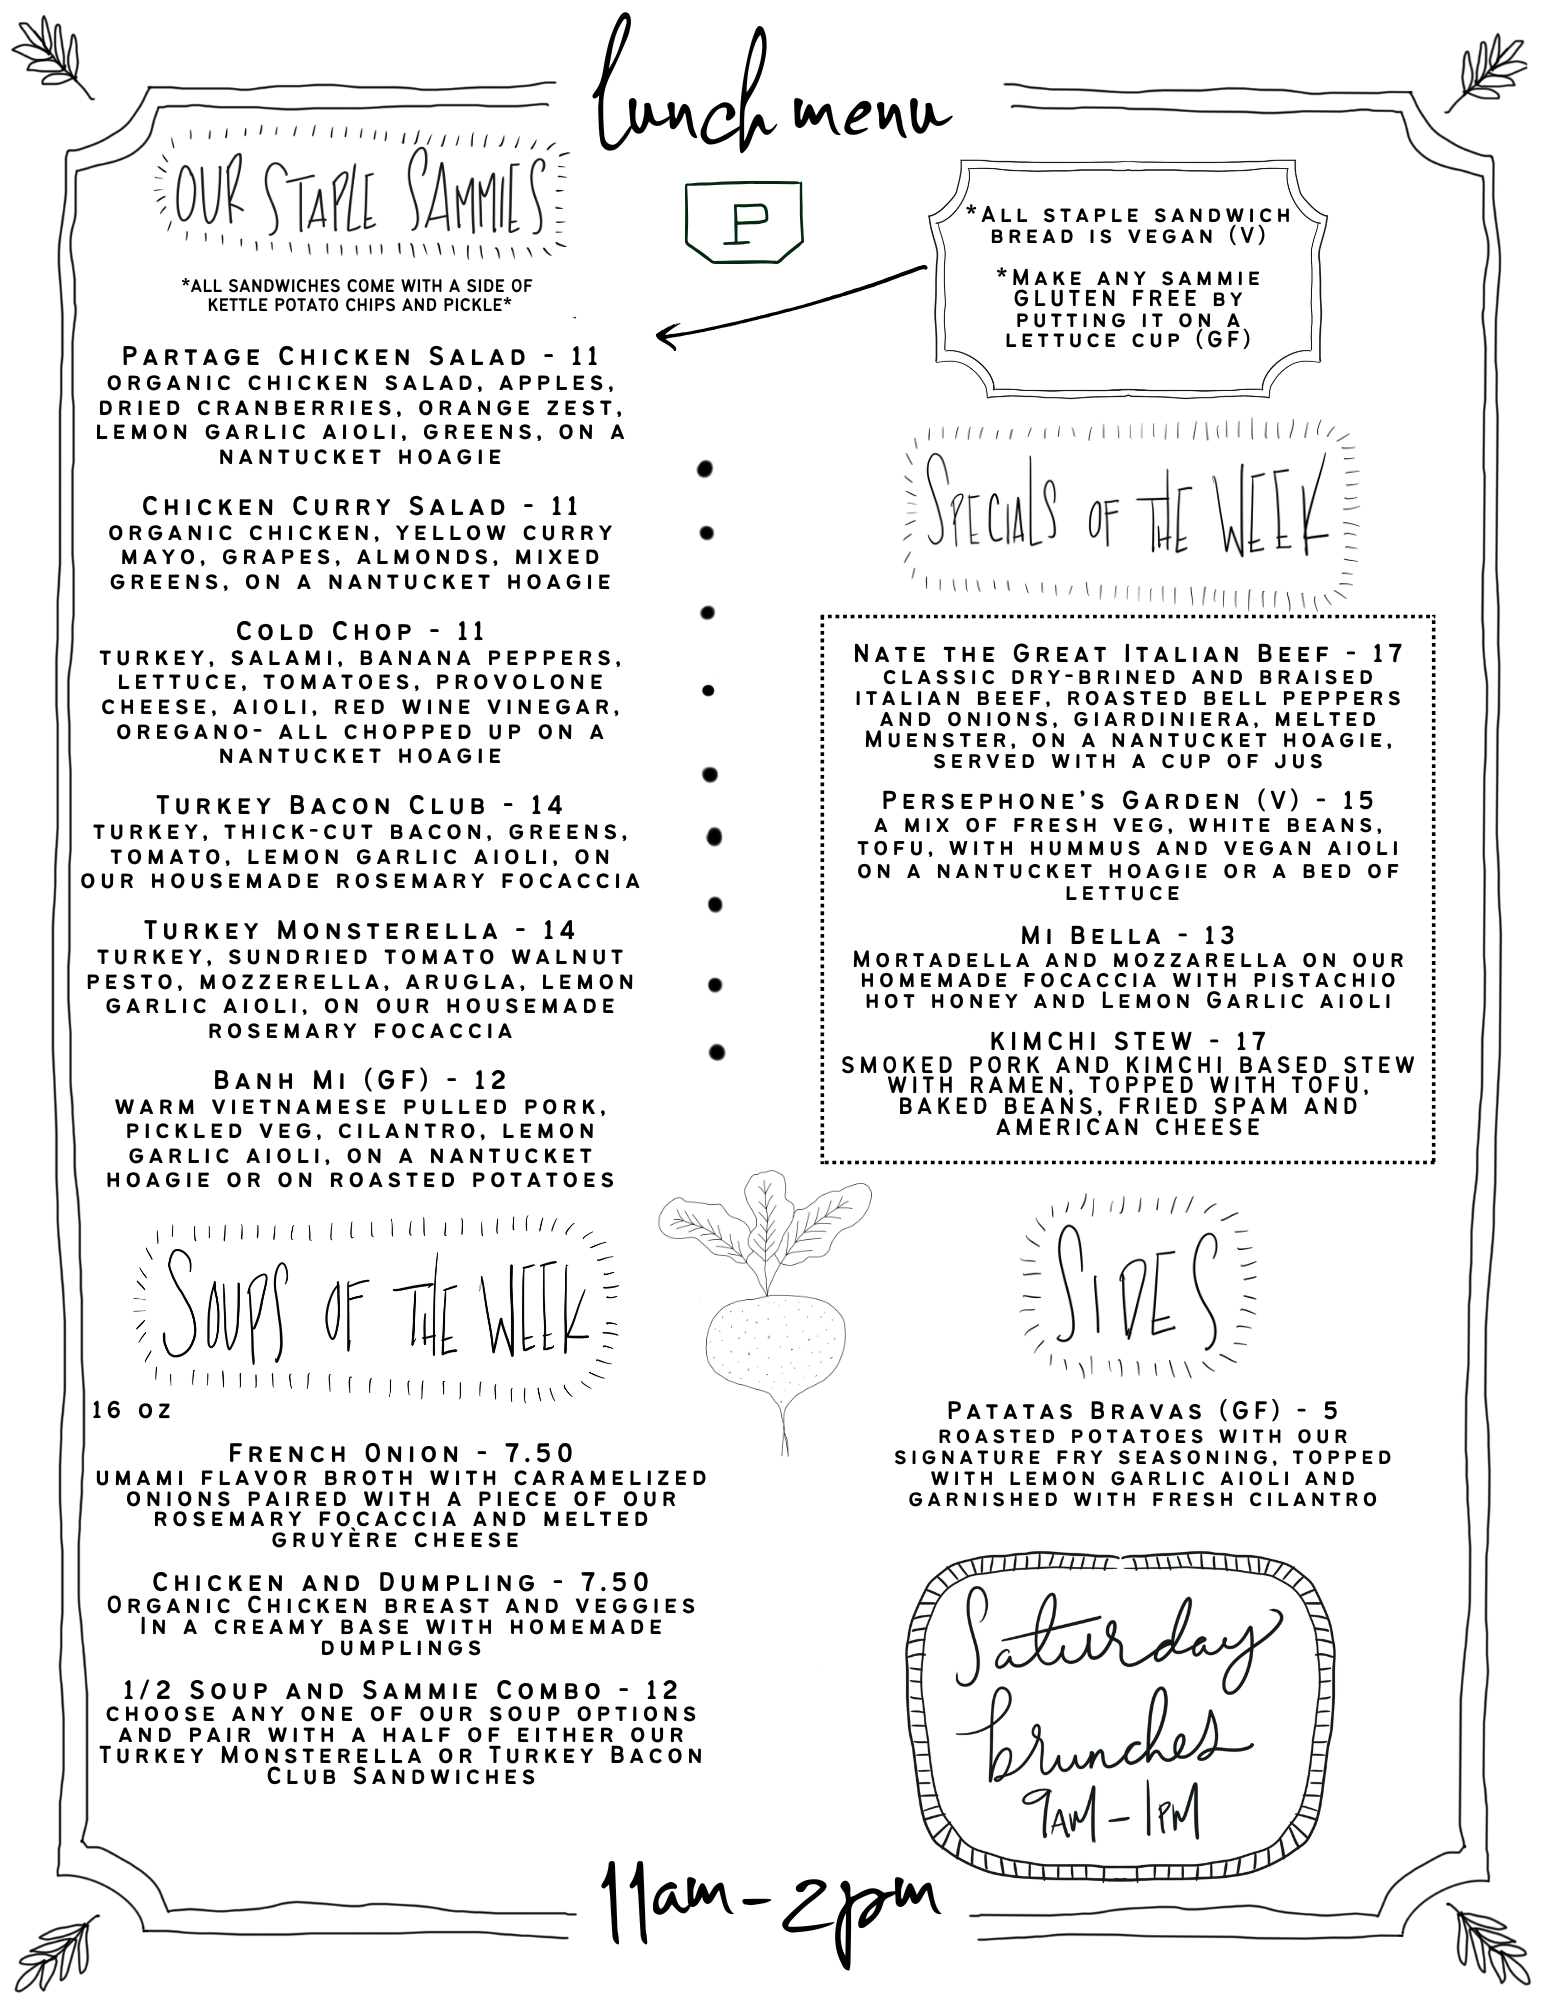 lunch menu
OUR STAPLE SAMMIES
*ALL SANDWICHES COME WITH A SIDE OF
KETTLE POTATO CHIPS AND PICKLE*
PARTAGE CHICKEN SALAD - 11
ORGANIC CHICKEN SALAD, APPLES,
DRIED CRANBERRIES, ORANGE ZEST,
LEMON GARLIC AIOLI, GREENS, ON A
NANTUCKET HOAGIE
CHICKEN CURRY SALAD - 11
ORGANIC CHICKEN, YELLOW CURRY
MAYO, GRAPES, ALMONDS, MIXED
GREENS, ON A NANTUCKET HOAGIE
COLD CHOP - 11
TURKEY, SALAMI, BANANA PEPPERS,
LETTUCE, TOMATOES, PROVOLONE
CHEESE, AIOLI, RED WINE VINEGAR,
OREGANO- ALL CHOPPED UP ON A
NANTUCKET HOAGIE
TURKEY BACON CLUB - 14
TURKEY, THICK-CUT BACON, GREENS,
TOMATO, LEMON GARLIC AIOLI, ON
OUR HOUSEMADE ROSEMARY FOCACCIA
TURKEY MONSTERELLA - 14
TURKEY, SUNDRIED TOMATO WALNUT
PESTO, MOZZERELLA, ARUGLA, LEMON
GARLIC AIOLI, ON OUR HOUSEMADE
ROSEMARY FOCACCIA
BANH MI (GF) - 12
WARM VIETNAMESE PULLED PORK,
PICKLED VEG, CILANTRO, LEMON
GARLIC AIOLI, ON A NANTUCKET
HOAGIE OR ON ROASTED POTATOES
SOUPS OF THE WEEK
16 OZ
FRENCH ONION - 7.50
UMAMI FLAVOR BROTH WITH CARAMELIZED
ONIONS PAIRED WITH A PIECE OF OUR
ROSEMARY FOCACCIA AND MELTED
GRUYÈRE CHEESE
CHICKEN AND DUMPLING - 7.50
ORGANIC CHICKEN BREAST AND VEGGIES
IN A CREAMY BASE WITH HOMEMADE
DUMPLINGS
1/2 SOUP AND SAMMIE COMBO - 12
CHOOSE ANY ONE OF OUR SOUP OPTIONS
AND PAIR WITH A HALF OF EITHER OUR
TURKEY MONSTERELLA OR TURKEY BACON
CLUB SANDWICHES
P
*ALL STAPLE SANDWICH
BREAD IS VEGAN (V)
*MAKE ANY SAMMIE
GLUTEN FREE BY
PUTTING IT ON A
LETTUCE CUP (GF)
SPECIALS OF THE WEEK
NATE THE GREAT ITALIAN BEEF - 17
CLASSIC DRY-BRINED AND BRAISED
ITALIAN BEEF, ROASTED BELL PEPPERS
AND ONIONS, GIARDINIERA, MELTED
MUENSTER, ON A NANTUCKET HOAGIE,
SERVED WITH A CUP OF JUS
PERSEPHONE'S GARDEN (V) - 15
A MIX OF FRESH VEG, WHITE BEANS,
TOFU, WITH HUMMUS AND VEGAN AIOLI
ON A NANTUCKET HOAGIE OR A BED OF
LETTUCE
MI BELLA - 13
MORTADELLA AND MOZZARELLA ON OUR
HOMEMADE FOCACCIA WITH PISTACHIO
HOT HONEY AND LEMON GARLIC AIOLI
KIMCHI STEW - 17
SMOKED PORK AND KIMCHI BASED STEW
WITH RAMEN, TOPPED WITH TOFU,
BAKED BEANS, FRIED SPAM AND
AMERICAN CHEESE
SIDES
PATATAS BRAVAS (GF) - 5
ROASTED POTATOES WITH OUR
SIGNATURE FRY SEASONING, TOPPED
WITH LEMON GARLIC AIOLI AND
GARNISHED WITH FRESH CILANTRO
Saturday
brunches
9AM - 1PM
11am - 2pm